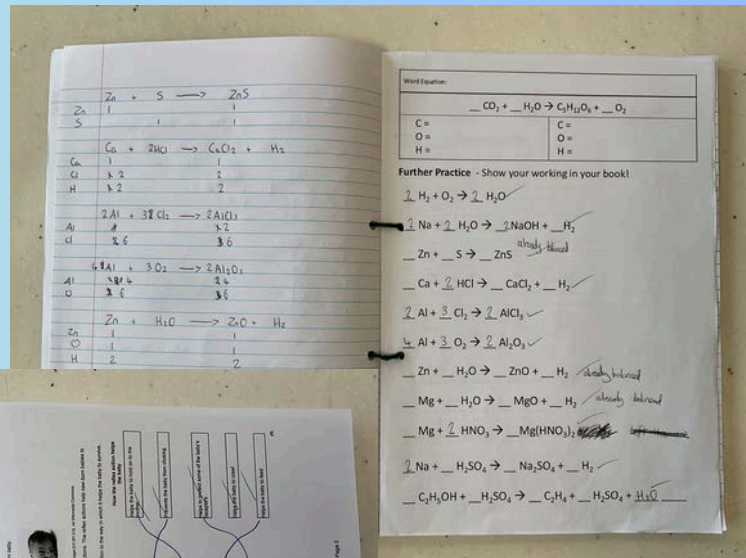 Zn + S → ZnS
Zn 1 1
S 1 1
Ca + 2HCl → CaCl2 + H2
Ca 1 1
Cl 1 2 2
H 1 2 2
2Al + 3Cl2 → 2AlCl3
Al 1 2
Cl 2 6 3 6
4Al + 3O2 → 2Al2O3
Al 4 2 4
O 2 6 3 6
Zn + H2O → ZnO + H2
Zn 1 1
O 1 1
H 2 2
Word Equation:
__ CO2 + __ H2O → C6H12O6 + __ O2
C = C =
O = O =
H = H =
Further Practice - Show your working in your book!
2 H2 + O2 → 2 H2O
2 Na + 2 H2O → 2 NaOH + __ H2
__ Zn + __ S → __ ZnS already balanced
__ Ca + 2 HCl → __ CaCl2 + __ H2
2 Al + 3 Cl2 → 2 AlCl3
4 Al + 3 O2 → 2 Al2O3
__ Zn + __ H2O → __ ZnO + __ H2 already balanced
__ Mg + __ H2O → __ MgO + __ H2 already balanced
__ Mg + 2 HNO3 → __ Mg(HNO3)2
2 Na + __ H2SO4 → __ Na2SO4 + __ H2
__ C2H5OH + __ H2SO4 → __ C2H4 + __ H2SO4 + H2O
How the reflex action helps
the baby
helps the baby to hold on to the
prevents the baby from choking
helps to protect some of the baby's
helps the baby to crawl
helps the baby to feed
Page 2